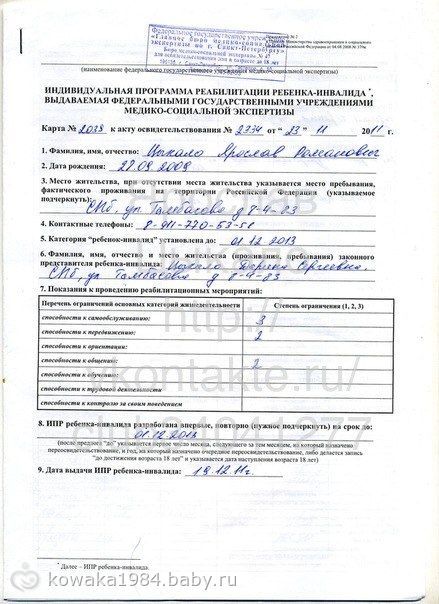 Федеральное государственное учреждение
«Главное бюро медико-социальной
экспертизы по г. Санкт-Петербургу»
(наименование федерального государственного учреждения медико-социальной экспертизы)
ИНДИВИДУАЛЬНАЯ ПРОГРАММА РЕАБИЛИТАЦИИ РЕБЕНКА-ИНВАЛИДА *,
ВЫДАВАЕМАЯ ФЕДЕРАЛЬНЫМИ ГОСУДАРСТВЕННЫМИ УЧРЕЖДЕНИЯМИ
МЕДИКО-СОЦИАЛЬНОЙ ЭКСПЕРТИЗЫ
Карта № 2038 к акту освидетельствования № 2734 от "23" 11 2011 г.
1. Фамилия, имя, отчество: Цыкало Ярослав Романович
2. Дата рождения: 22.09.2009
3. Место жительства, при отсутствии места жительства указывается место пребывания,
фактического проживания на территории Российской Федерации (указываемое
подчеркнуть):
СПб, ул. д 7-4-83
4. Контактные телефоны: 8-911-770-53-51
5. Категория "ребенок-инвалид" установлена до: 01.12.2013
6. Фамилия, имя, отчество и место жительства (проживания, пребывания) законного
представителя ребенка-инвалида: Цыкало Сергеевна,
СПб, ул д 7-4-83
7. Показания к проведению реабилитационных мероприятий:
Перечень ограничений основных категорий жизнедеятельности Степень ограничения (1, 2, 3)
способности к самообслуживанию: 3
способности к передвижению: 2
способности к ориентации:
способности к общению: 2
способности к обучению:
способности к трудовой деятельности
способности к контролю за своим поведением
8. ИПР ребенка-инвалида разработана впервые, повторно (нужное подчеркнуть) на срок до:
01.12.2013
(после предлога "до" указывается первое число месяца, следующего за тем месяцем, на который назначено
переосвидетельствование, и год, на который назначено очередное переосвидетельствование, либо делается запись
"до достижения возраста 18 лет" и указывается дата наступления возраста 18 лет)
9. Дата выдачи ИПР ребенка-инвалида: 19.12.11г.
* Далее – ИПР ребенка-инвалида.
http://
vkontakte.ru/
kowaka1984.baby.ru